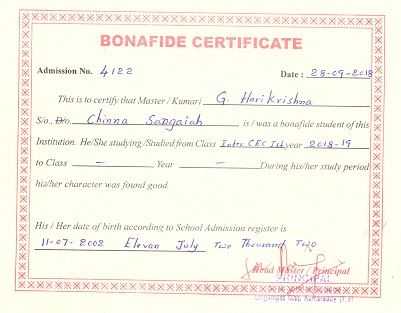 BONAFIDE CERTIFICATE
Admission No. 4122 Date : 28-09-2018
This is to certify that Master / Kumari G. Harikrishna
S/o., D/o. Chinna Sangaiah is / was a bonafide student of this
Institution. He/She studying /Studied from Class Inter CEC Ist year 2018-19
to Class - Year - During his/her study period
his/her character was found good.
His / Her date of birth according to School Admission register is
11-07-2002 Eleven July Two Thousand Two
Head Master / Principal
PRINCIPAL